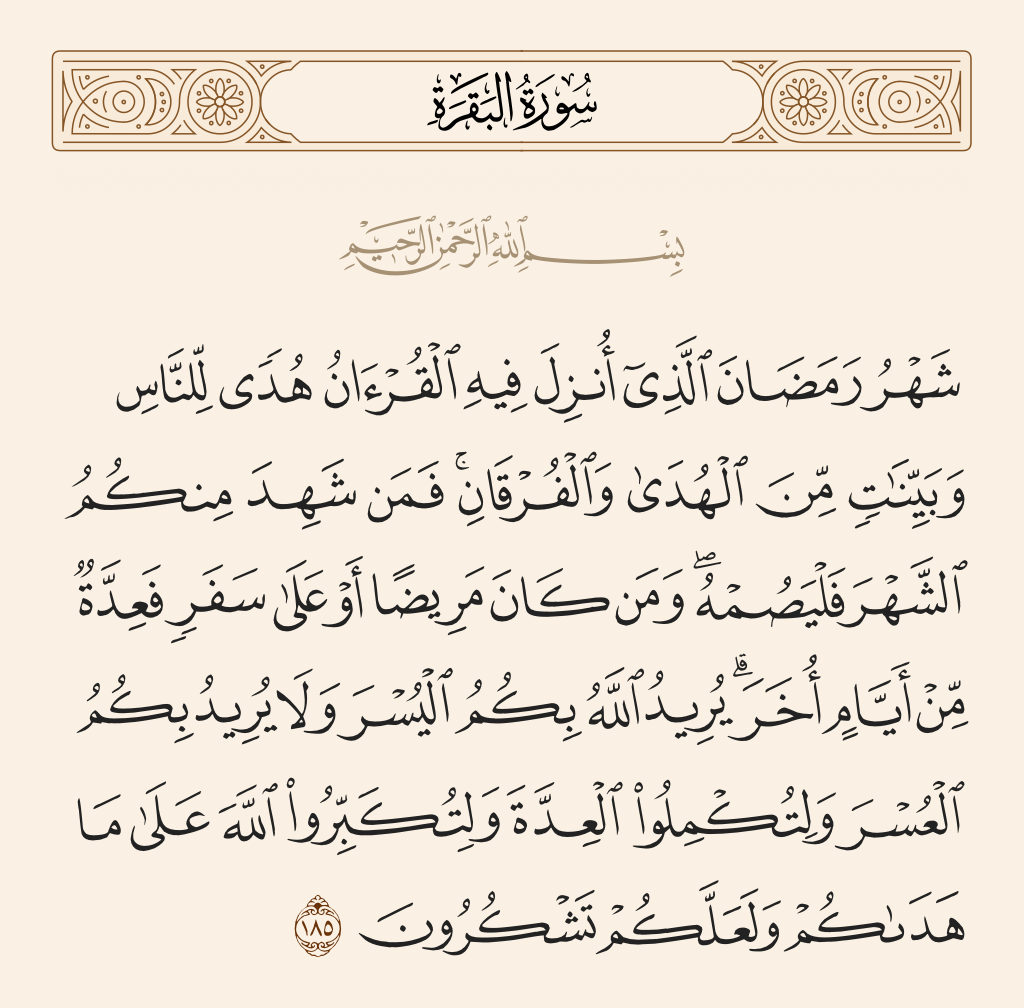 سُورَةُ الْبَقَرَةِ
بِسْمِ ٱللَّهِ ٱلرَّحْمَٰنِ ٱلرَّحِيمِ
شَهْرُ رَمَضَانَ ٱلَّذِىٓ أُنزِلَ فِيهِ ٱلْقُرْءَانُ هُدًى لِّلنَّاسِ
وَبَيِّنَٰتٍ مِّنَ ٱلْهُدَىٰ وَٱلْفُرْقَانِ ۚ فَمَن شَهِدَ مِنكُمُ
ٱلشَّهْرَ فَلْيَصُمْهُ ۖ وَمَن كَانَ مَرِيضًا أَوْ عَلَىٰ سَفَرٍ فَعِدَّةٌ
مِّنْ أَيَّامٍ أُخَرَ ۗ يُرِيدُ ٱللَّهُ بِكُمُ ٱلْيُسْرَ وَلَا يُرِيدُ بِكُمُ
ٱلْعُسْرَ وَلِتُكْمِلُوا۟ ٱلْعِدَّةَ وَلِتُكَبِّرُوا۟ ٱللَّهَ عَلَىٰ مَا
هَدَىٰكُمْ وَلَعَلَّكُمْ تَشْكُرُونَ ١٨٥